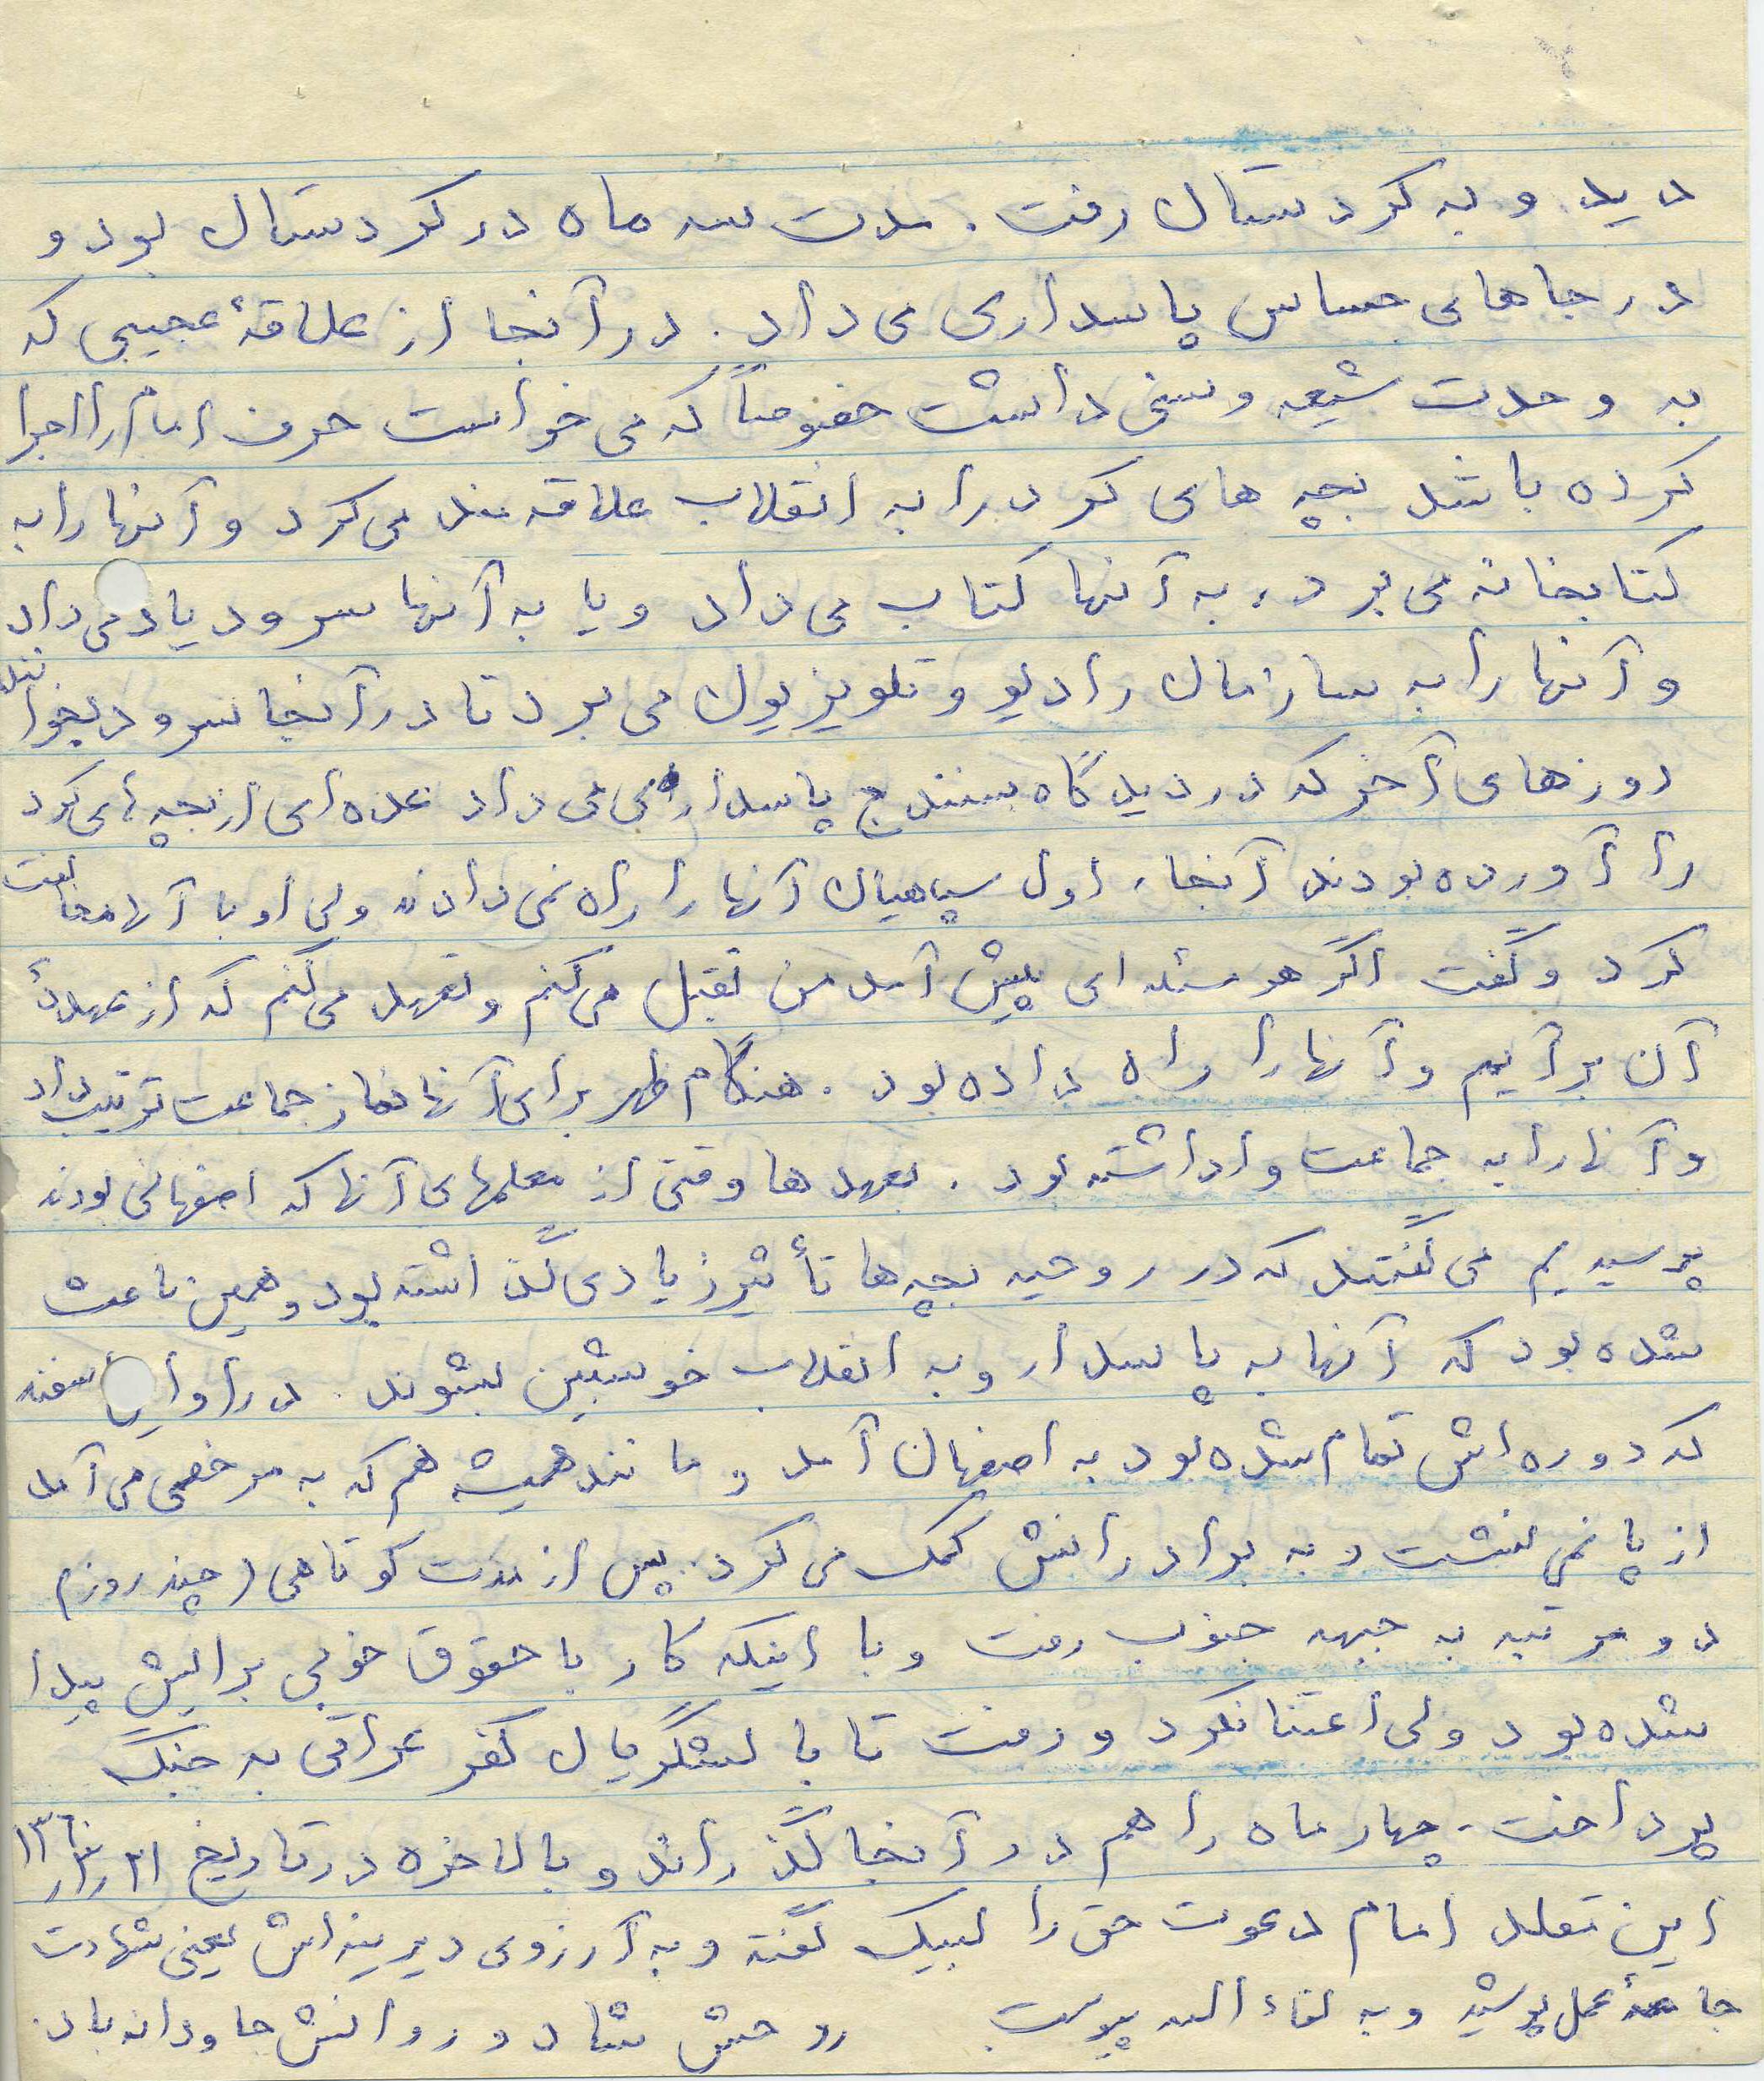 دید و به کردستان رفت. مدت سه ماه در کردستان بود و
در جاهای حساس پاسداری می داد. در آنجا از علاقهٔ عجیبی که
به وحدت شیعه و سنی داشت خصوصاً که می خواست حرف امام را اجرا
کرده باشد بچه های کرد را به انقلاب علاقه مند می کرد و آنها را به
کتابخانه می برد، به آنها کتاب می داد و یا به آنها سرود یاد می داد
و آنها را به سازمان رادیو و تلویزیون می برد تا در آنجا سرود بخوانند
روزهای آخر که در دیدگاه سنندج پاسداری می داد عده ای از بچه های کرد
را آورده بودند آنجا، اول سپاهیان آنها را راه نمی دادند ولی او با آنها مخالفت
کرد و گفت اگر هر مسئله ای پیش آمد من تقبل می کنم و تعهد می کنم که از عهدهٔ
آن برآیم و آنها را راه داده بود. هنگام ظهر برای آنها نماز جماعت ترتیب داد
و آنها را به جماعت واداشته بود. بعدها وقتی از معلمهای آنها که اصفهانی بودند
پرسیدیم می گفتند که در روحیه بچه ها تأثیر زیادی گذاشته بود و همین باعث
شده بود که آنها به پاسدار و به انقلاب خوشبین بشوند. در اوایل اسفند
که دوره اش تمام شده بود به اصفهان آمد و مانند همیشه هم که به مرخصی می آمد
از پا نمی نشست و به برادرانش کمک می کرد. پس از مدت کوتاهی (چند روز)
دو مرتبه به جبهه جنوب رفت و با اینکه کار با حقوق خوبی برایش پیدا
شده بود ولی اعتنا نکرد و رفت تا با لشگریان کفر عراقی به جنگ
پرداخت. چهار ماه را هم در آنجا گذراند و بالاخره در تاریخ
این مقلد امام دعوت حق را لبیک گفته و به آرزوی دیرینه اش یعنی شهادت
جامهٔ عمل پوشید و به لقاء الله پیوست. روحش شاد و روانش جاودانه باد.